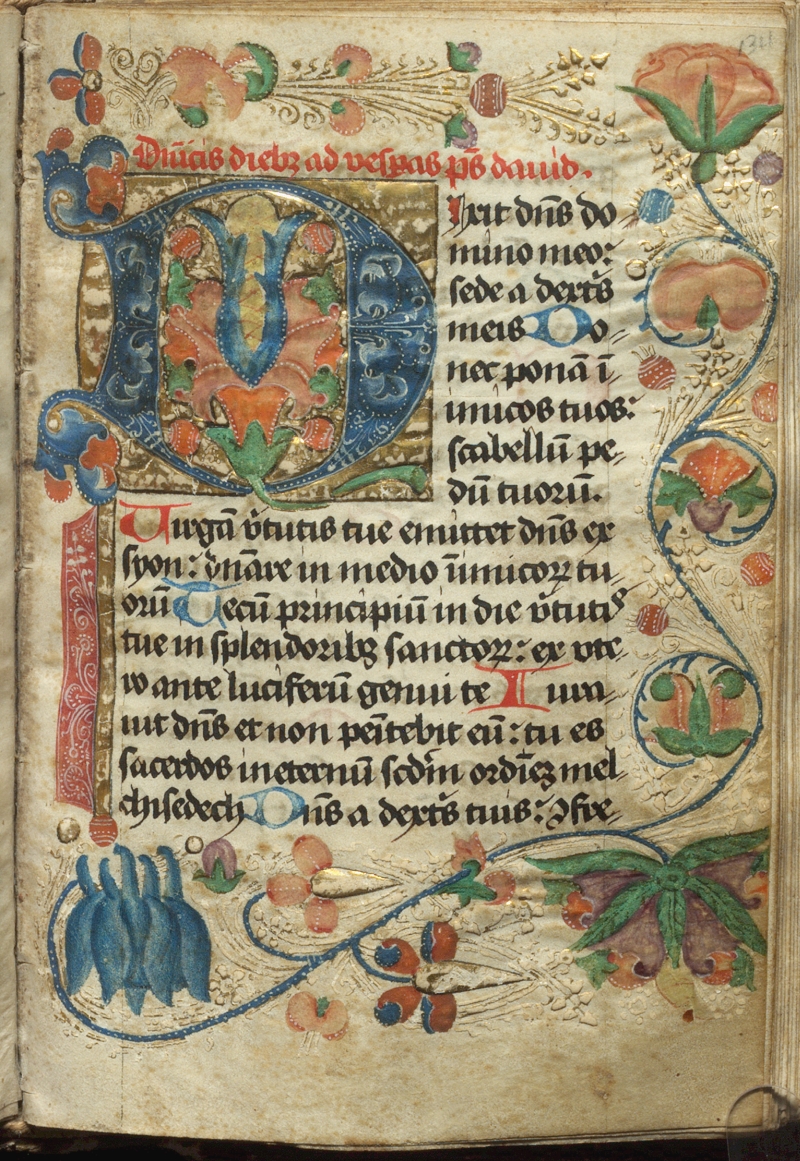 131
Dn̄icis dieb⁊ ad vesp̄as ps̄ dauid.
Dixit dn̄s do
mino meo:
sede a dextr̄s
meis Do-
nec ponā ī
imicos tuos:
scabellū pe-
dū tuorū.
Uirgā v̄tutis tue emittet dn̄s ex
syon: dn̄are in medio īimicoꝝ tu-
orū Tecū principiū in die v̄tutis
tue in splendoribꝫ sanctoꝝ: ex vte-
ro ante luciferū genui te Iura-
uit dn̄s et non pen̄tebit eū: tu es
sacerdos in eternū scd̄m ordīeꝫ mel
chisedech Dn̄s a dextr̄s tuis: ꝯfre-